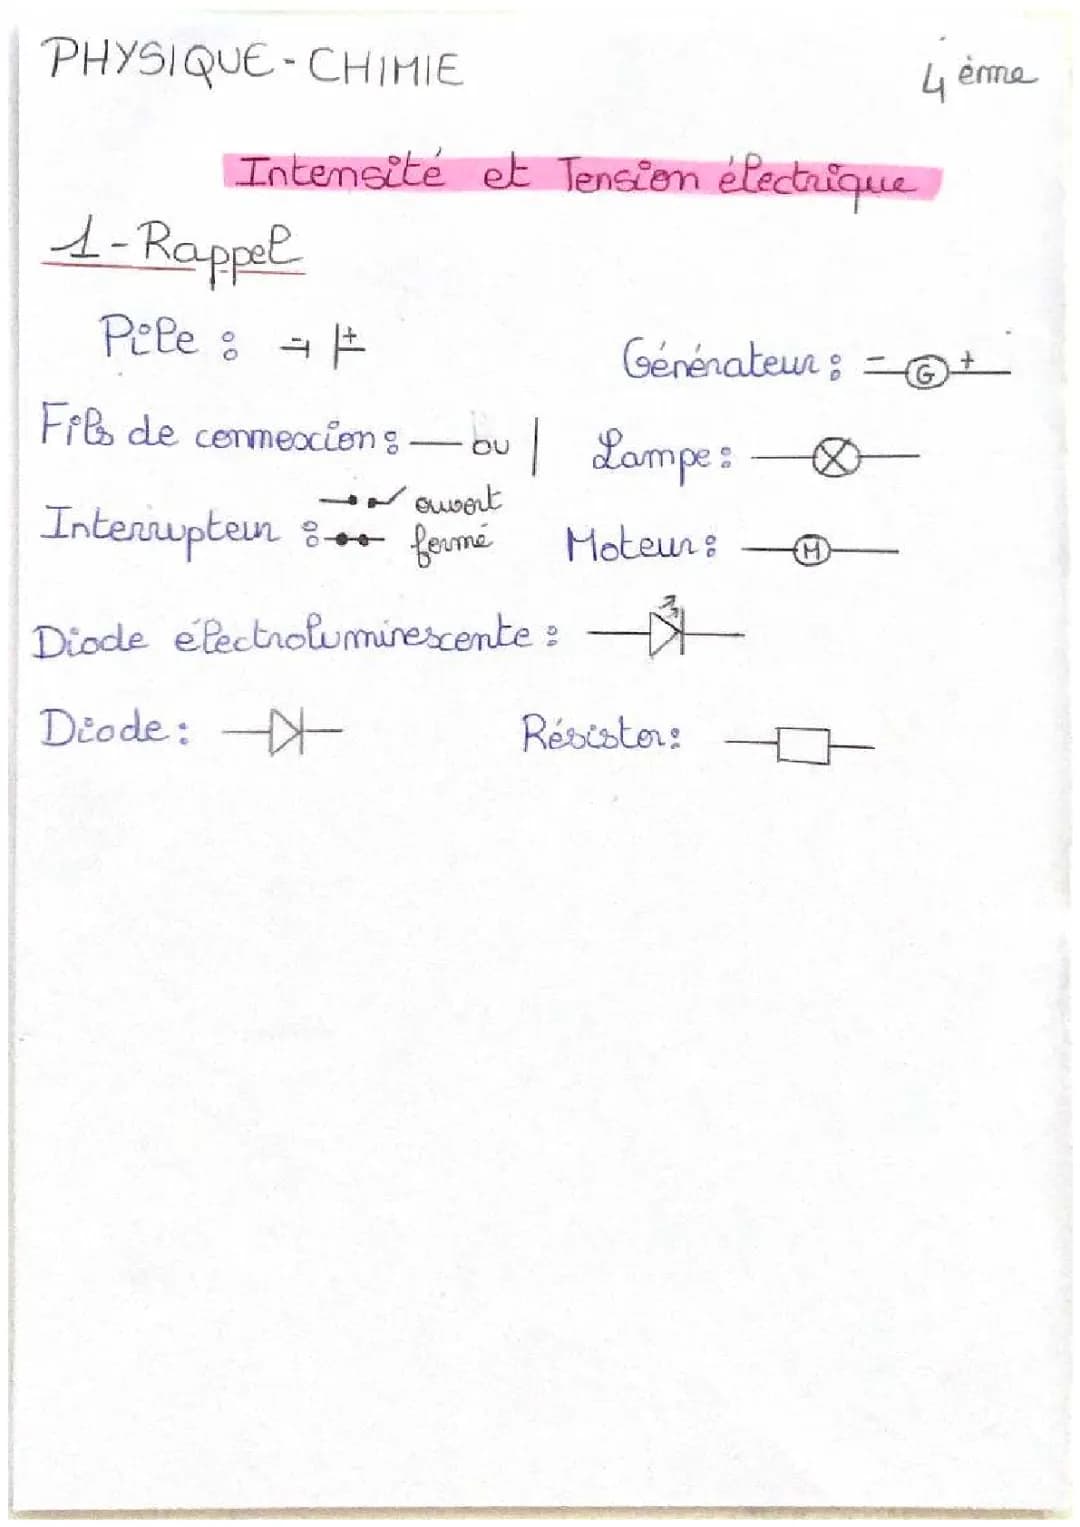 PHYSIQUE-CHIMIE
4 ème
Intensité et Tension électrique
1-Rappel
Pile : - +
Générateur : - G +
Fils de connexion : — ou |
Lampe :
Interrupteur : ouvert
fermé
Moteur : M
Diode électroluminescente :
Diode :
Résistor :